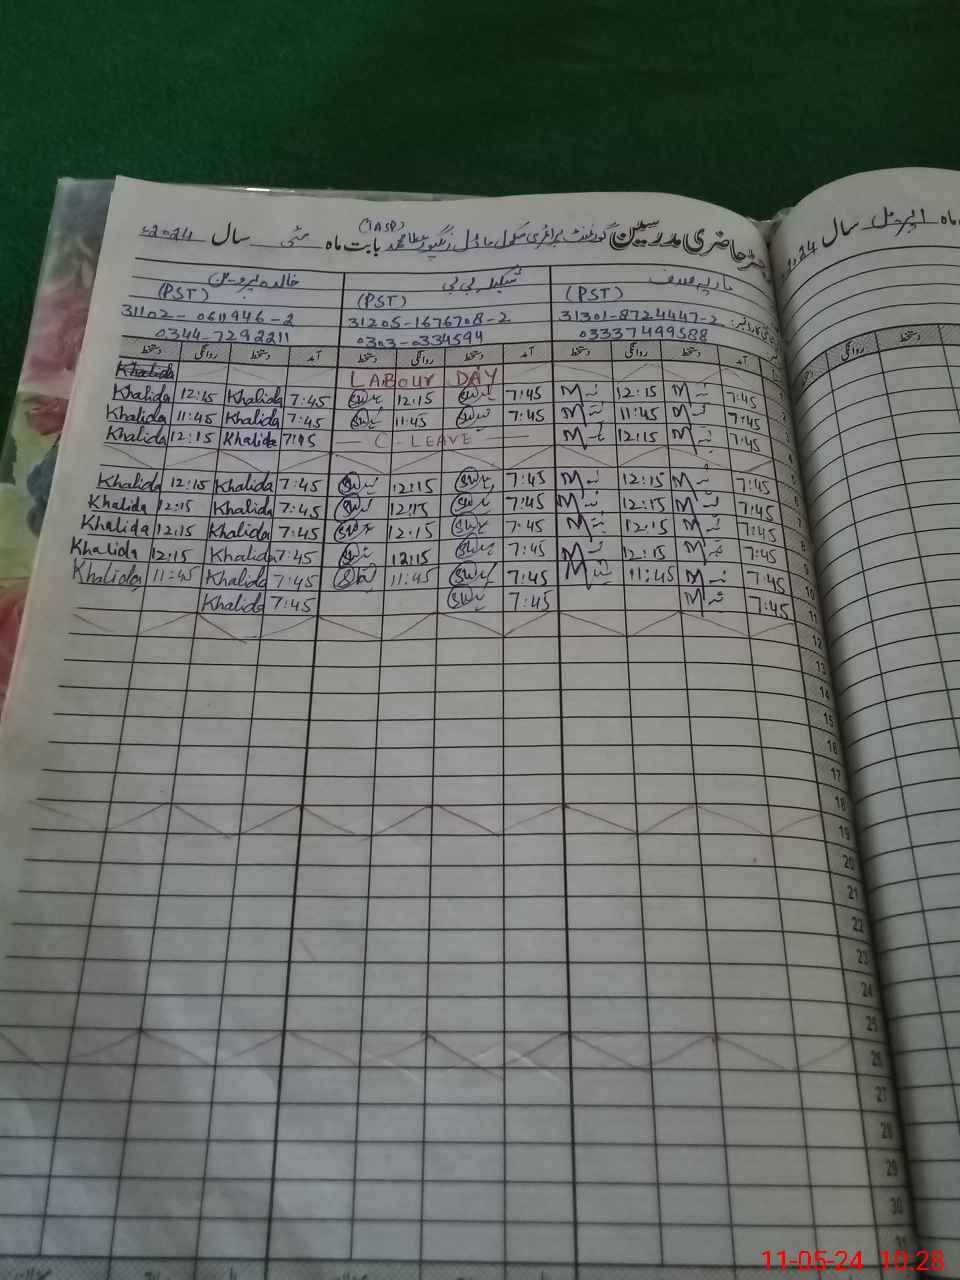 رجسٹر حاضری مدرسین گورنمنٹ پرائمری سکول ماڈل رنگپور عطا محمد (IASP) بابت ماہ مئی سال 2024ء
ماہ اپریل سال 24
ماریہ صدف شکیلہ بی بی خالدہ پروین
(PST) (PST) (PST)
31102-0611946-2 31205-1676708-2 31301-8724447-2
0344-7292211 0303-0334594 03337499588
آمد دستخط روانگی دستخط آمد دستخط روانگی دستخط آمد دستخط روانگی دستخط
روانگی دستخط
Khalida LABOUR DAY 1
Khalida 12:15 Khalida 7:45 12:15 7:45 12:15 7:45 2
Khalida 11:45 Khalida 7:45 11:45 7:45 11:45 7:45 3
Khalida 12:15 Khalida 7:45 C-LEAVE 12:15 7:45 4
Khalida 12:15 Khalida 7:45 12:15 7:45 12:15 7:45 6
Khalida 12:15 Khalida 7:45 12:15 7:45 12:15 7:45 7
Khalida 12:15 Khalida 7:45 12:15 7:45 12:15 7:45 8
Khalida 12:15 Khalida 7:45 12:15 7:45 12:15 7:45 9
Khalida 11:45 Khalida 7:45 11:45 7:45 11:45 7:45 10
Khalida 7:45 7:45 7:45 11
12
13
14
15
16
17
18
19
20
21
22
23
24
25
26
27
28
29
30
31
11-05-24 10:28